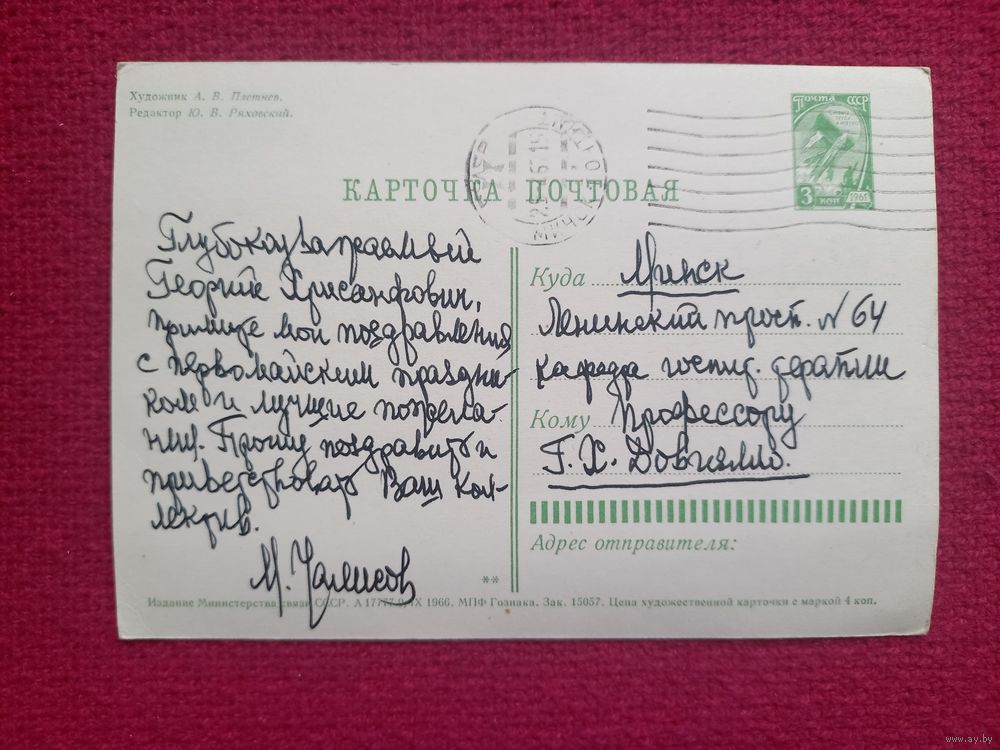 Художник А. В. Плетнев.
Редактор Ю. В. Ряховский.
Почта СССР
3 коп
1961
КАРТОЧКА ПОЧТОВАЯ
Глубокоуважаемый
Георгий Хрисанфович,
примите мои поздравления
с первомайским праздни-
ком и лучшие пожела-
ния. Прошу поздравить и
приветствовать Ваш кол-
лектив.
Куда Минск
Ленинский просп. № 64
кафедра госпит. терапии
Кому Профессору
Г. Х. Довгялло.
Адрес отправителя:
**
Издание Министерства связи СССР. А 17777. 9/IX 1966. МПФ Гознака. Зак. 15057. Цена художественной карточки с маркой 4 коп.
www.ay.by